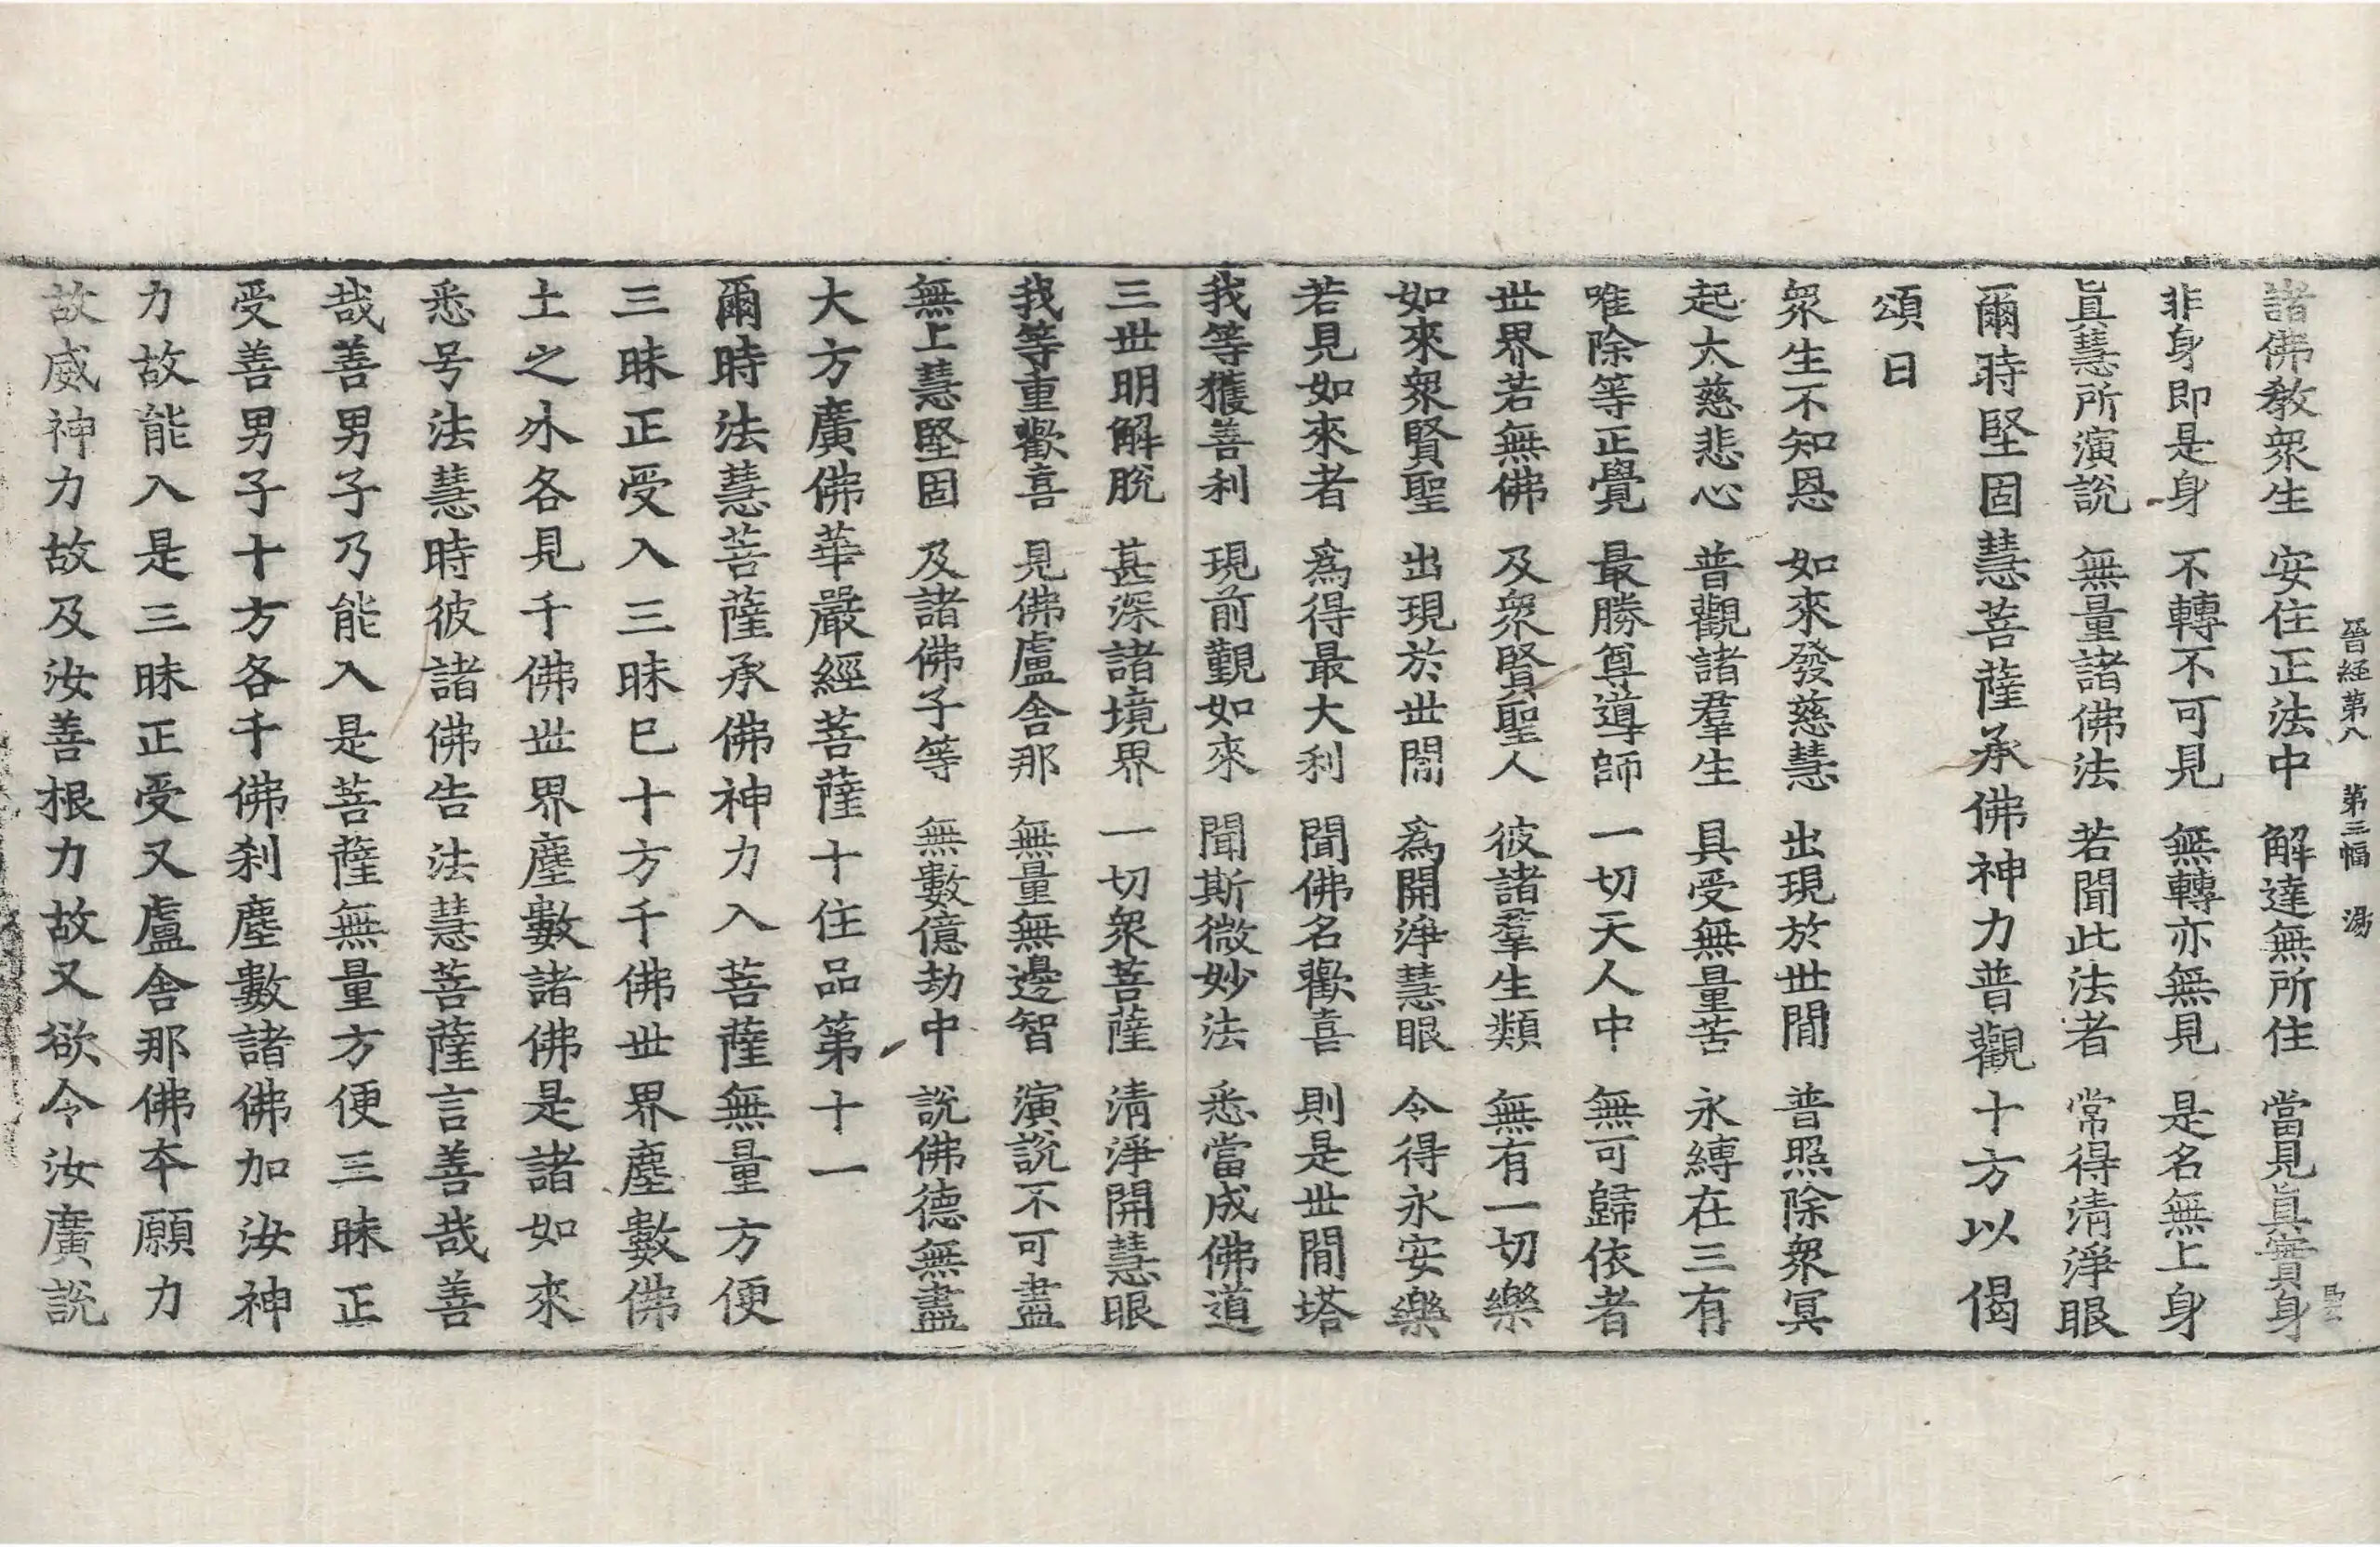 晉経第八 第三幅 湯
諸佛教衆生 安住正法中 解達無所住 當見眞實身
非身即是身 不轉不可見 無轉亦無見 是名無上身
眞慧所演說 無量諸佛法 若聞此法者 常得清淨眼
爾時堅固慧菩薩承佛神力普觀十方以偈
頌曰
衆生不知恩 如來發慈慧 出現於世間 普照除衆冥
起大慈悲心 普觀諸羣生 具受無量苦 永縛在三有
唯除等正覺 最勝尊導師 一切天人中 無可歸依者
世界若無佛 及衆賢聖人 彼諸羣生類 無有一切樂
如來衆賢聖 出現於世間 爲開淨慧眼 令得永安樂
若見如來者 爲得最大利 聞佛名歡喜 則是世間塔
我等獲善利 現前覩如來 聞斯微妙法 悉當成佛道
三世明解脫 甚深諸境界 一切衆菩薩 清淨開慧眼
我等重歡喜 見佛盧舍那 無量無邊智 演說不可盡
無上慧堅固 及諸佛子等 無數億劫中 說佛德無盡
大方廣佛華嚴經菩薩十住品第十一
爾時法慧菩薩承佛神力入菩薩無量方便
三昧正受入三昧已十方千佛世界塵數佛
土之外各見千佛世界塵數諸佛是諸如來
悉号法慧時彼諸佛告法慧菩薩言善哉善
哉善男子乃能入是菩薩無量方便三昧正
受善男子十方各千佛刹塵數諸佛加汝神
力故能入是三昧正受又盧舍那佛本願力
故威神力故及汝善根力故又欲令汝廣說